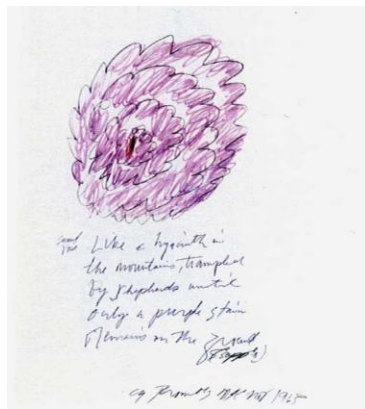 Like a hyacinth in
the mountains, trampled
by shepherds until
only a purple stain
remains on the ground
(Sappho)
1965